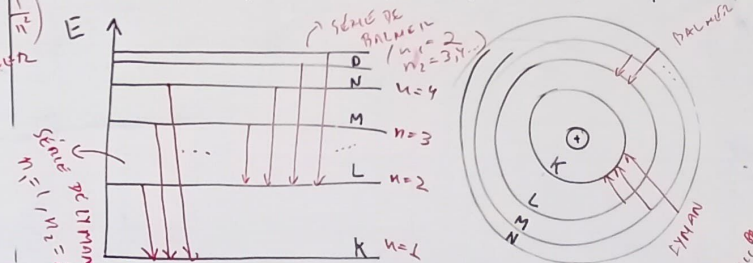 1
n²
E
SÉRIE DE
BALMER
n₁ = 2
n₂ = 3,4...
N n=4
M n=3
L n=2
K n=1
SÉRIE DE LYMAN
n₁ = 1, n₂ =
BALMER
K
L
M
N
LYMAN